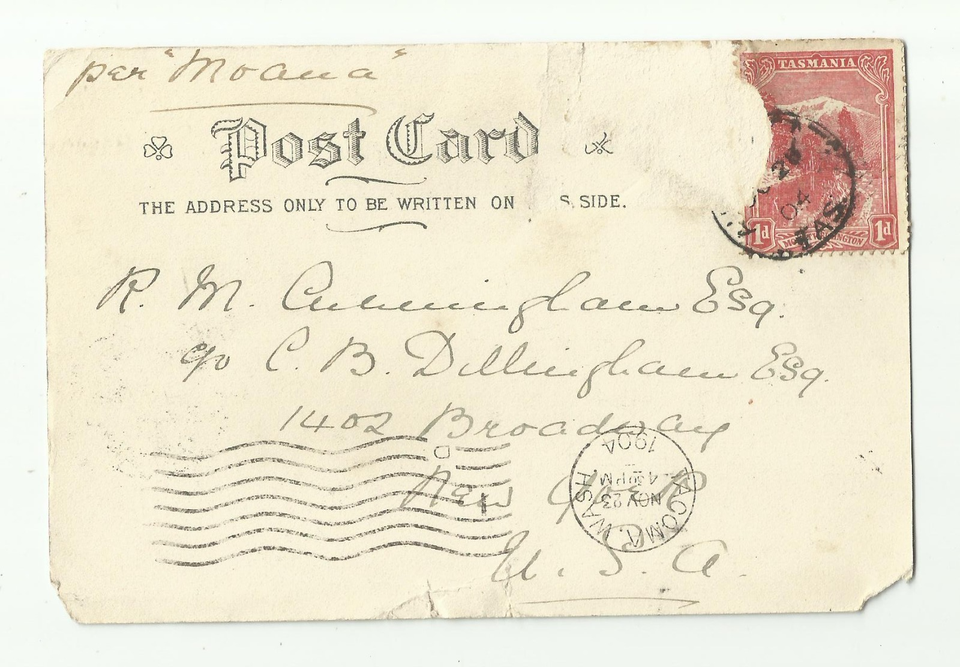 per "Moana"
Post Card
THE ADDRESS ONLY TO BE WRITTEN ON S SIDE.
TASMANIA
1d 1d
26
04
TAS
R. M. Cunningham Esq.
c/o C. B. Dillingham Esq.
1402 Broadway
New York
U. S. A.
TACOMA, WASH
NOV 23
4 30 PM
1904
D